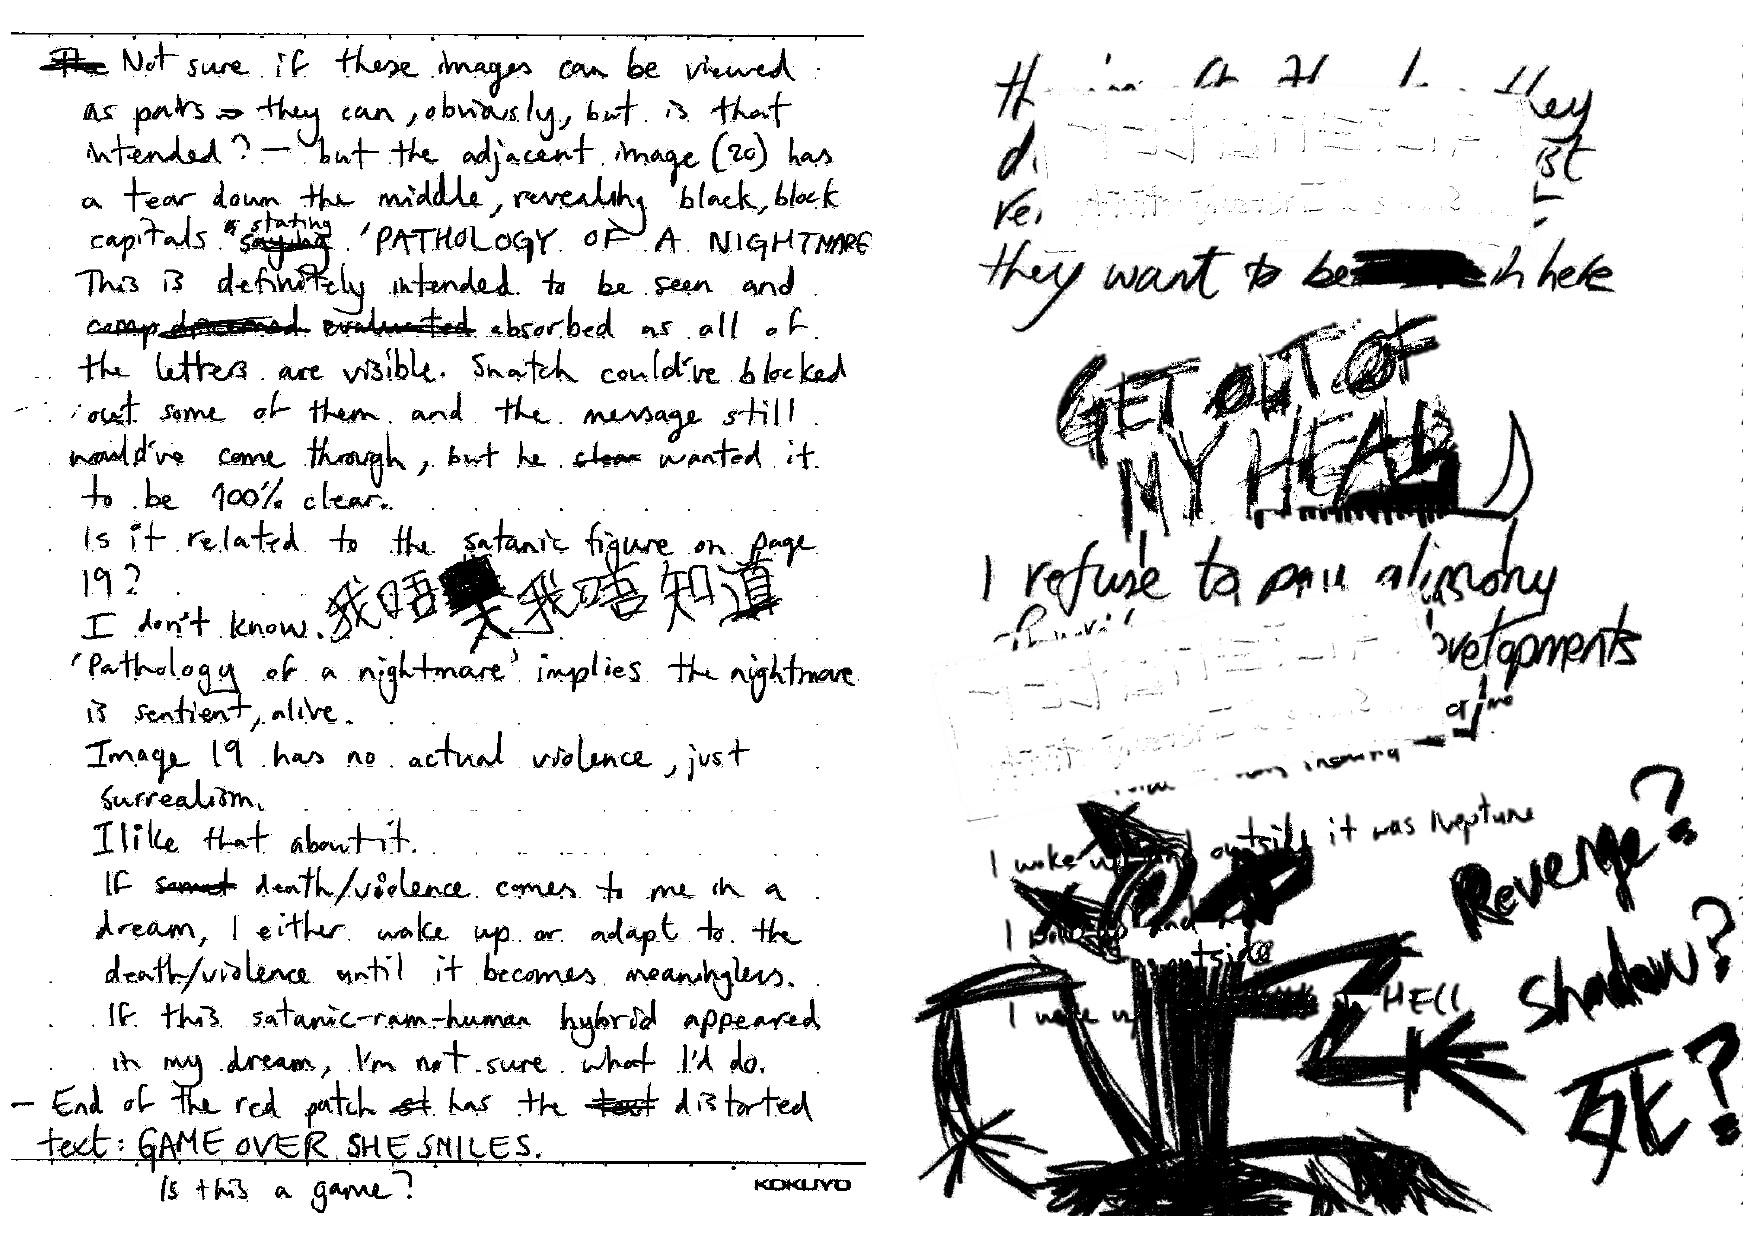 Not sure if these images can be viewed
as pairs → they can, obviously, but is that
intended? — but the adjacent image (20) has
a tear down the middle, revealing black, block
capitals stating 'PATHOLOGY OF A NIGHTMARE
This is definitely intended to be seen and
absorbed as all of
the letters are visible. Snatch could've blocked
out some of them and the message still
would've come through, but he wanted it
to be 100% clear.
Is it related to the satanic figure on page
19?
I don't know. 我唔 我唔知道
'Pathology of a nightmare' implies the nightmare
is sentient, alive.
Image 19 has no actual violence, just
surrealism.
I like that about it.
If death/violence comes to me in a
dream, I either wake up or adapt to the
death/violence until it becomes meaningless.
If this satanic-ram-human hybrid appeared
in my dream, I'm not sure what I'd do.
– End of the red patch has the distorted
text: GAME OVER SHE SMILES.
Is this a game?
KOKUYO
they
they want to be in here
GET OUT OF
MY HEAD
I refuse to alimony
I woke outside it was Neptune
outside
I woke HELL
Revenge?
Shadow?
死?